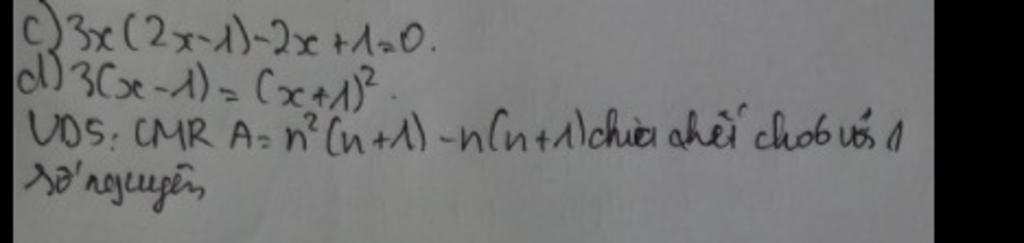 c) 3x(2x-1)-2x+1=0.
d) 3(x-1)=(x+1)².
VD5: CMR A= n²(n+1)-n(n+1)chia hết cho6 với
số nguyên